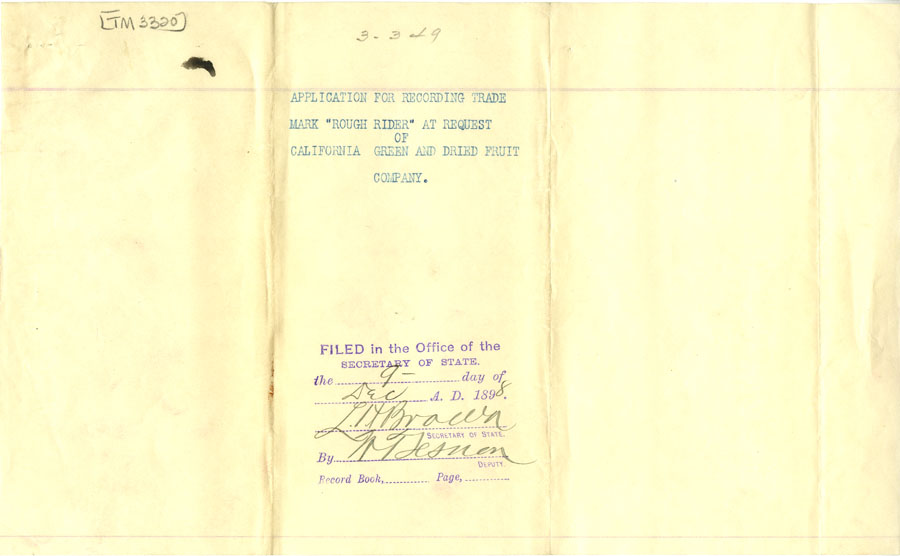 [TM 3320]
3-349
APPLICATION FOR RECORDING TRADE
MARK "ROUGH RIDER" AT REQUEST
OF
CALIFORNIA GREEN AND DRIED FRUIT
COMPANY.
FILED in the Office of the
SECRETARY OF STATE.
the 9- day of
Dec A. D. 1898.
L.H. Brown
SECRETARY OF STATE.
By
DEPUTY.
Record Book, Page,